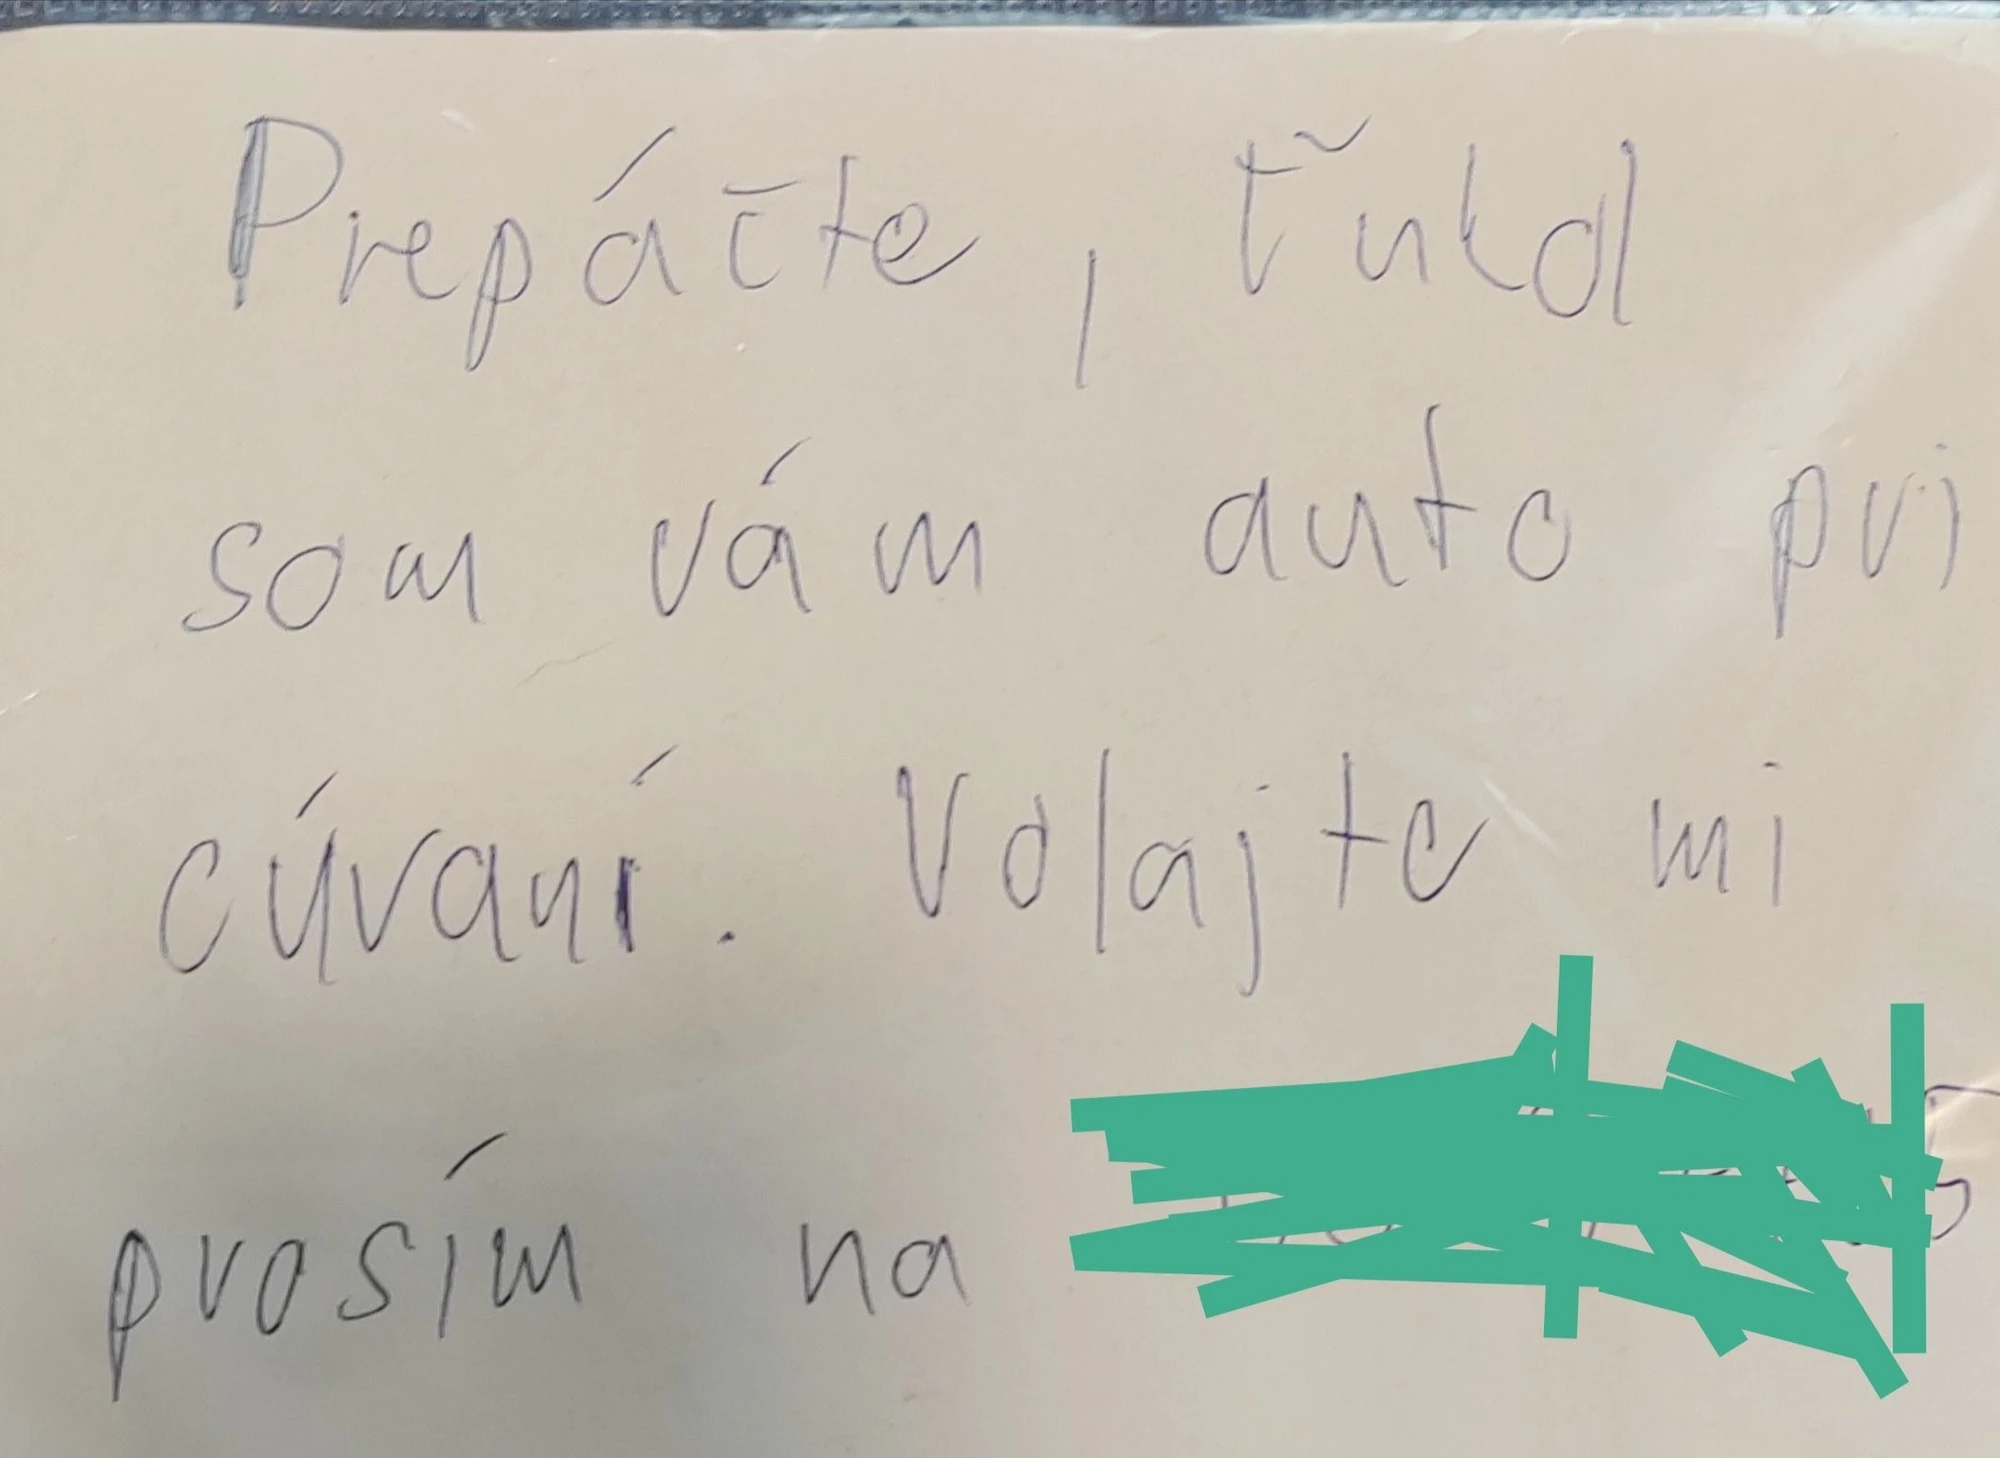 Prepáčte, ťukol
som vám auto pri
cúvaní. Volajte mi
prosím na